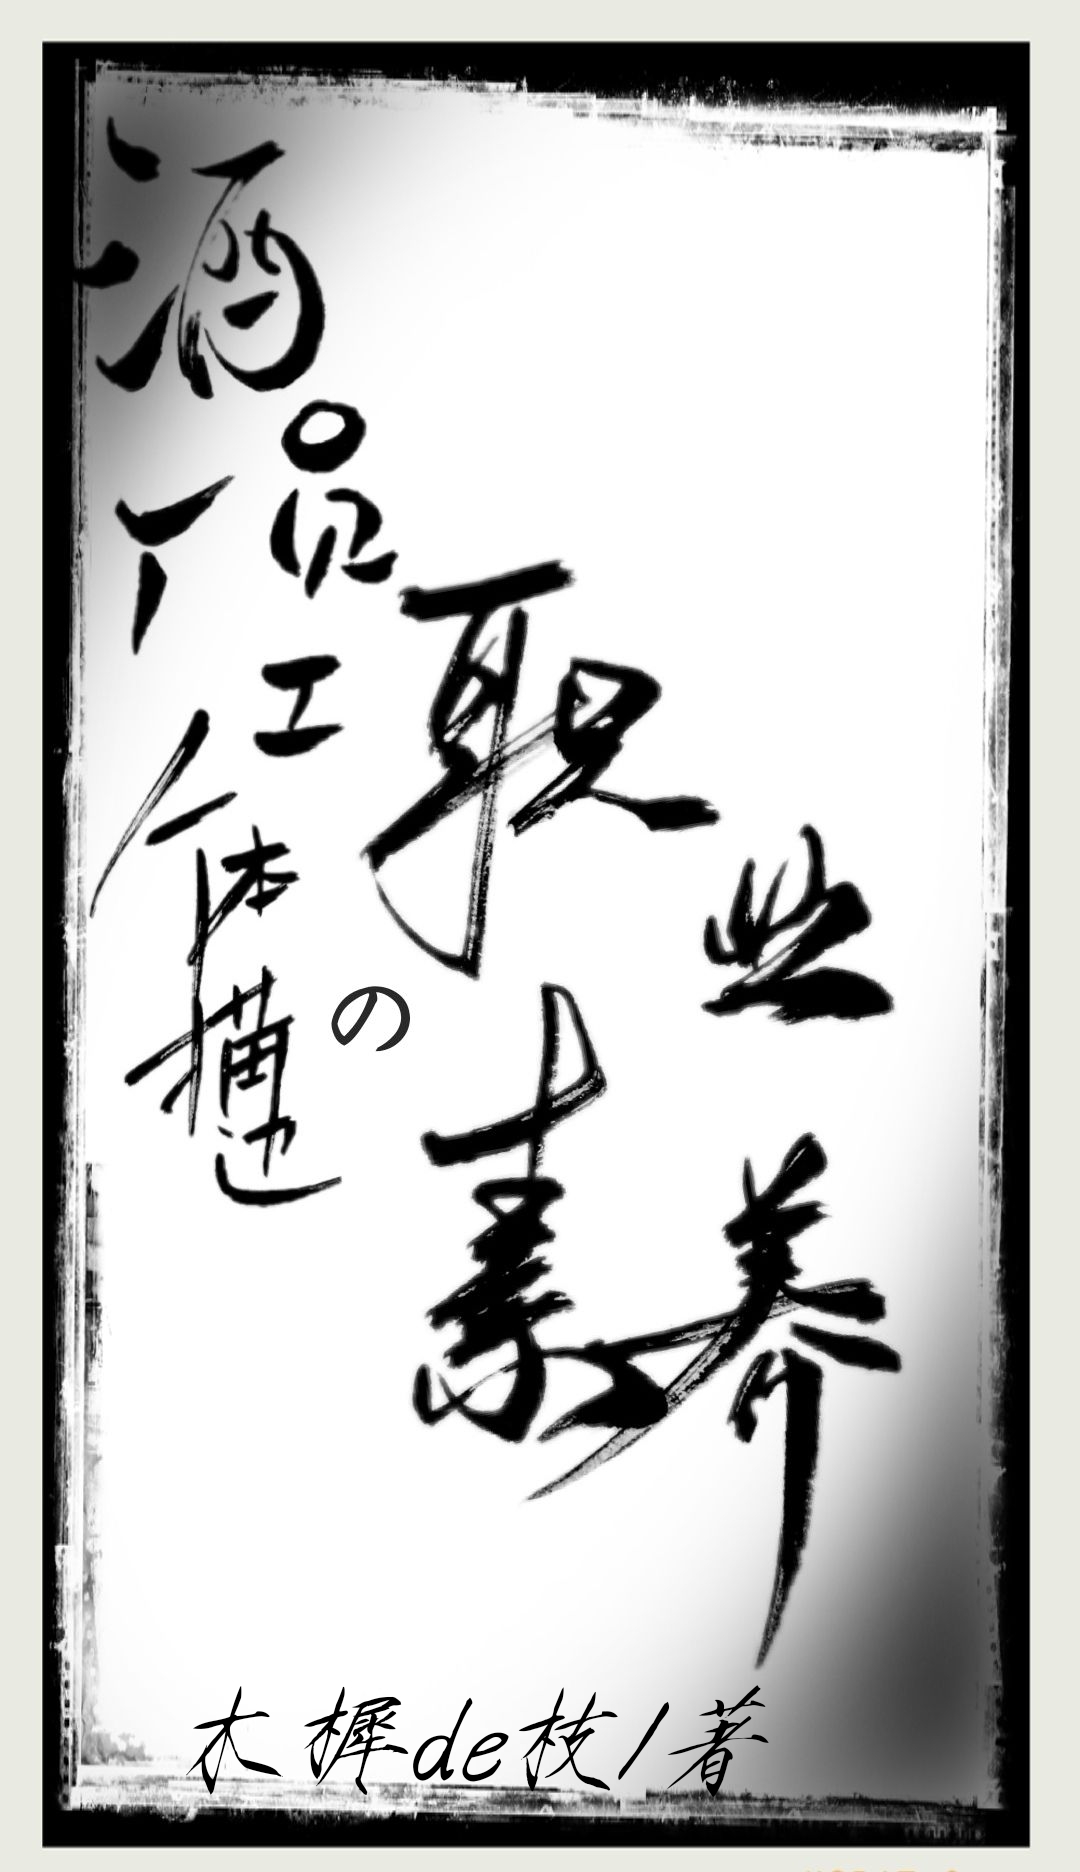 酒厂
员工
人体描边
の
职业
素养
木樨de枝/著